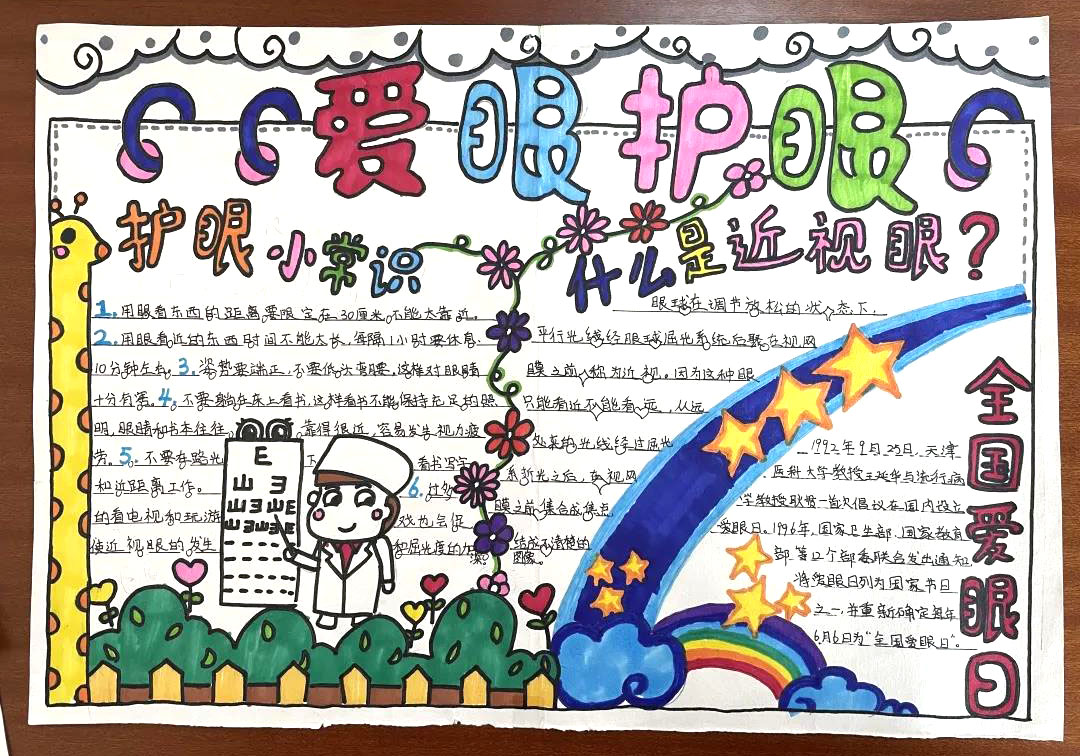 爱眼护眼
护眼小常识
1.用眼看东西的距离要限定在30厘米不能太靠近。
2.用眼看近的东西时间不能太长,每隔1小时要休息
10分钟左右。3.姿势要端正,不要低头弯腰。这样对眼睛
十分有害。4.不要躺在床上看书,这样看书不能保持充足的照
明,眼睛和书本往往靠得很近,容易发生视力疲
劳。5.不要在路光下看书写字
和近距离工作。6.过多
的看电视和玩游戏也会促
使近视眼的发生和屈光度的加深
E
什么是近视眼?
眼球在调节放松的状态下,
平行光线经眼球屈光系统后聚在视网
膜之前,称为近视。因为这种眼
只能看近不能看远,从远
处来的光线经过屈光
系折光之后,在视网
膜之前集合成焦点
结成不清楚的
图像。
全国爱眼日
1992年9月25日,天津
医科大学教授王延华与流行病
学教授耿贯一首次倡议在国内设立
爱眼日。1996年,国家卫生部、国家教育
部等12个部委联合发出通知,
将爱眼日列为国家节日
之一,并重新确定每年
6月6日为“全国爱眼日”。